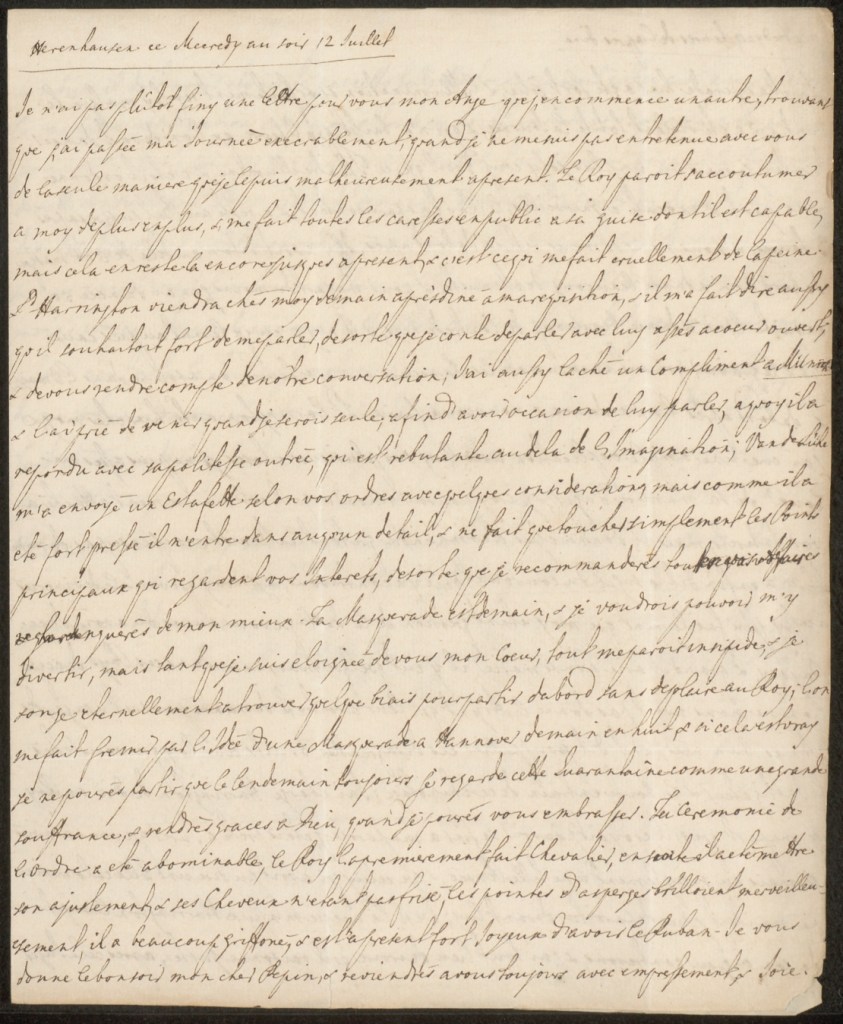 Herenhausen ce Mecredy au soir 12 Juillet
Je n'ai pas plûtot finy une lettre pour vous mon Ange que j'en commence un autre, trouvant
que j'ai passée ma Journée execrablement, quand je ne me suis pas entretenue avec vous
de la seule maniere que je le puis malheureusement apresent. Le Roy paroit s'accoutumer
a moy de plus en plus, & me fait toutes les caresses en public a sa guise dont il est capable,
mais cela en reste la encore jusques apresent, & c'est ce qui me fait cruellement de la peine.
Ld Harrington viendra chés moy demain aprésdiné a ma requisition, & il m'a fait dire aussy
qu'il souhaitoit fort de me parler, de sorte que je conte de parler avec luy a coeur ouvert,
& de vous rendre compte de nôtre conversation; J'ai aussy laché un Compliment a
& l'ai prié de venir quand je serois seule, afin d'avoir occasion de luy parler, a quoy il a
repondu avec sa politesse outrée, qui est rebutante au dela de l'Imagination;
m'a envoyé un Estafette selon vos ordres avec quelques considerations mais comme il a
eté fort pressé il n'entre dans auquun detail, & ne fait que toucher simplement les Points
principaux qui regardent vos Interets, de sorte que je recommanderés tout
de mon mieux. La Masquerade est demain, & je voudrois pouvoir m'y
divertir, mais tant que je suis eloignée de vous mon Coeur, tout me paroit insipide, & je
songe eternellement a trouver quelque biais pour partir d'abord sans deplaire au Roy; l'on
me fait fremir par l'Idée d'une Masquerade a Hannover demain en huit, & si cela est vray
je ne pourés partir que le lendemain toujours je regarde cette Quarantaine comme une grande
souffrance, & rendrés graces a Dieu, quand je pourés vous embrasser. La Ceremonie de
l'ordre a eté abominable, le Roy l'a premierement fait Chevalier, ensuite il a eté mettre
son ajustement, & ses Cheveux n'etant pas frisé, les pointes d'asperges brilloient merveilleu-
sement, il a beaucoup griffoné, & est apresent fort Joyeux d'avoir le Ruban. Je vous
donne le bon soir mon cher Pepin, & reviendrés a vous toujours avec empressement, & Joie.